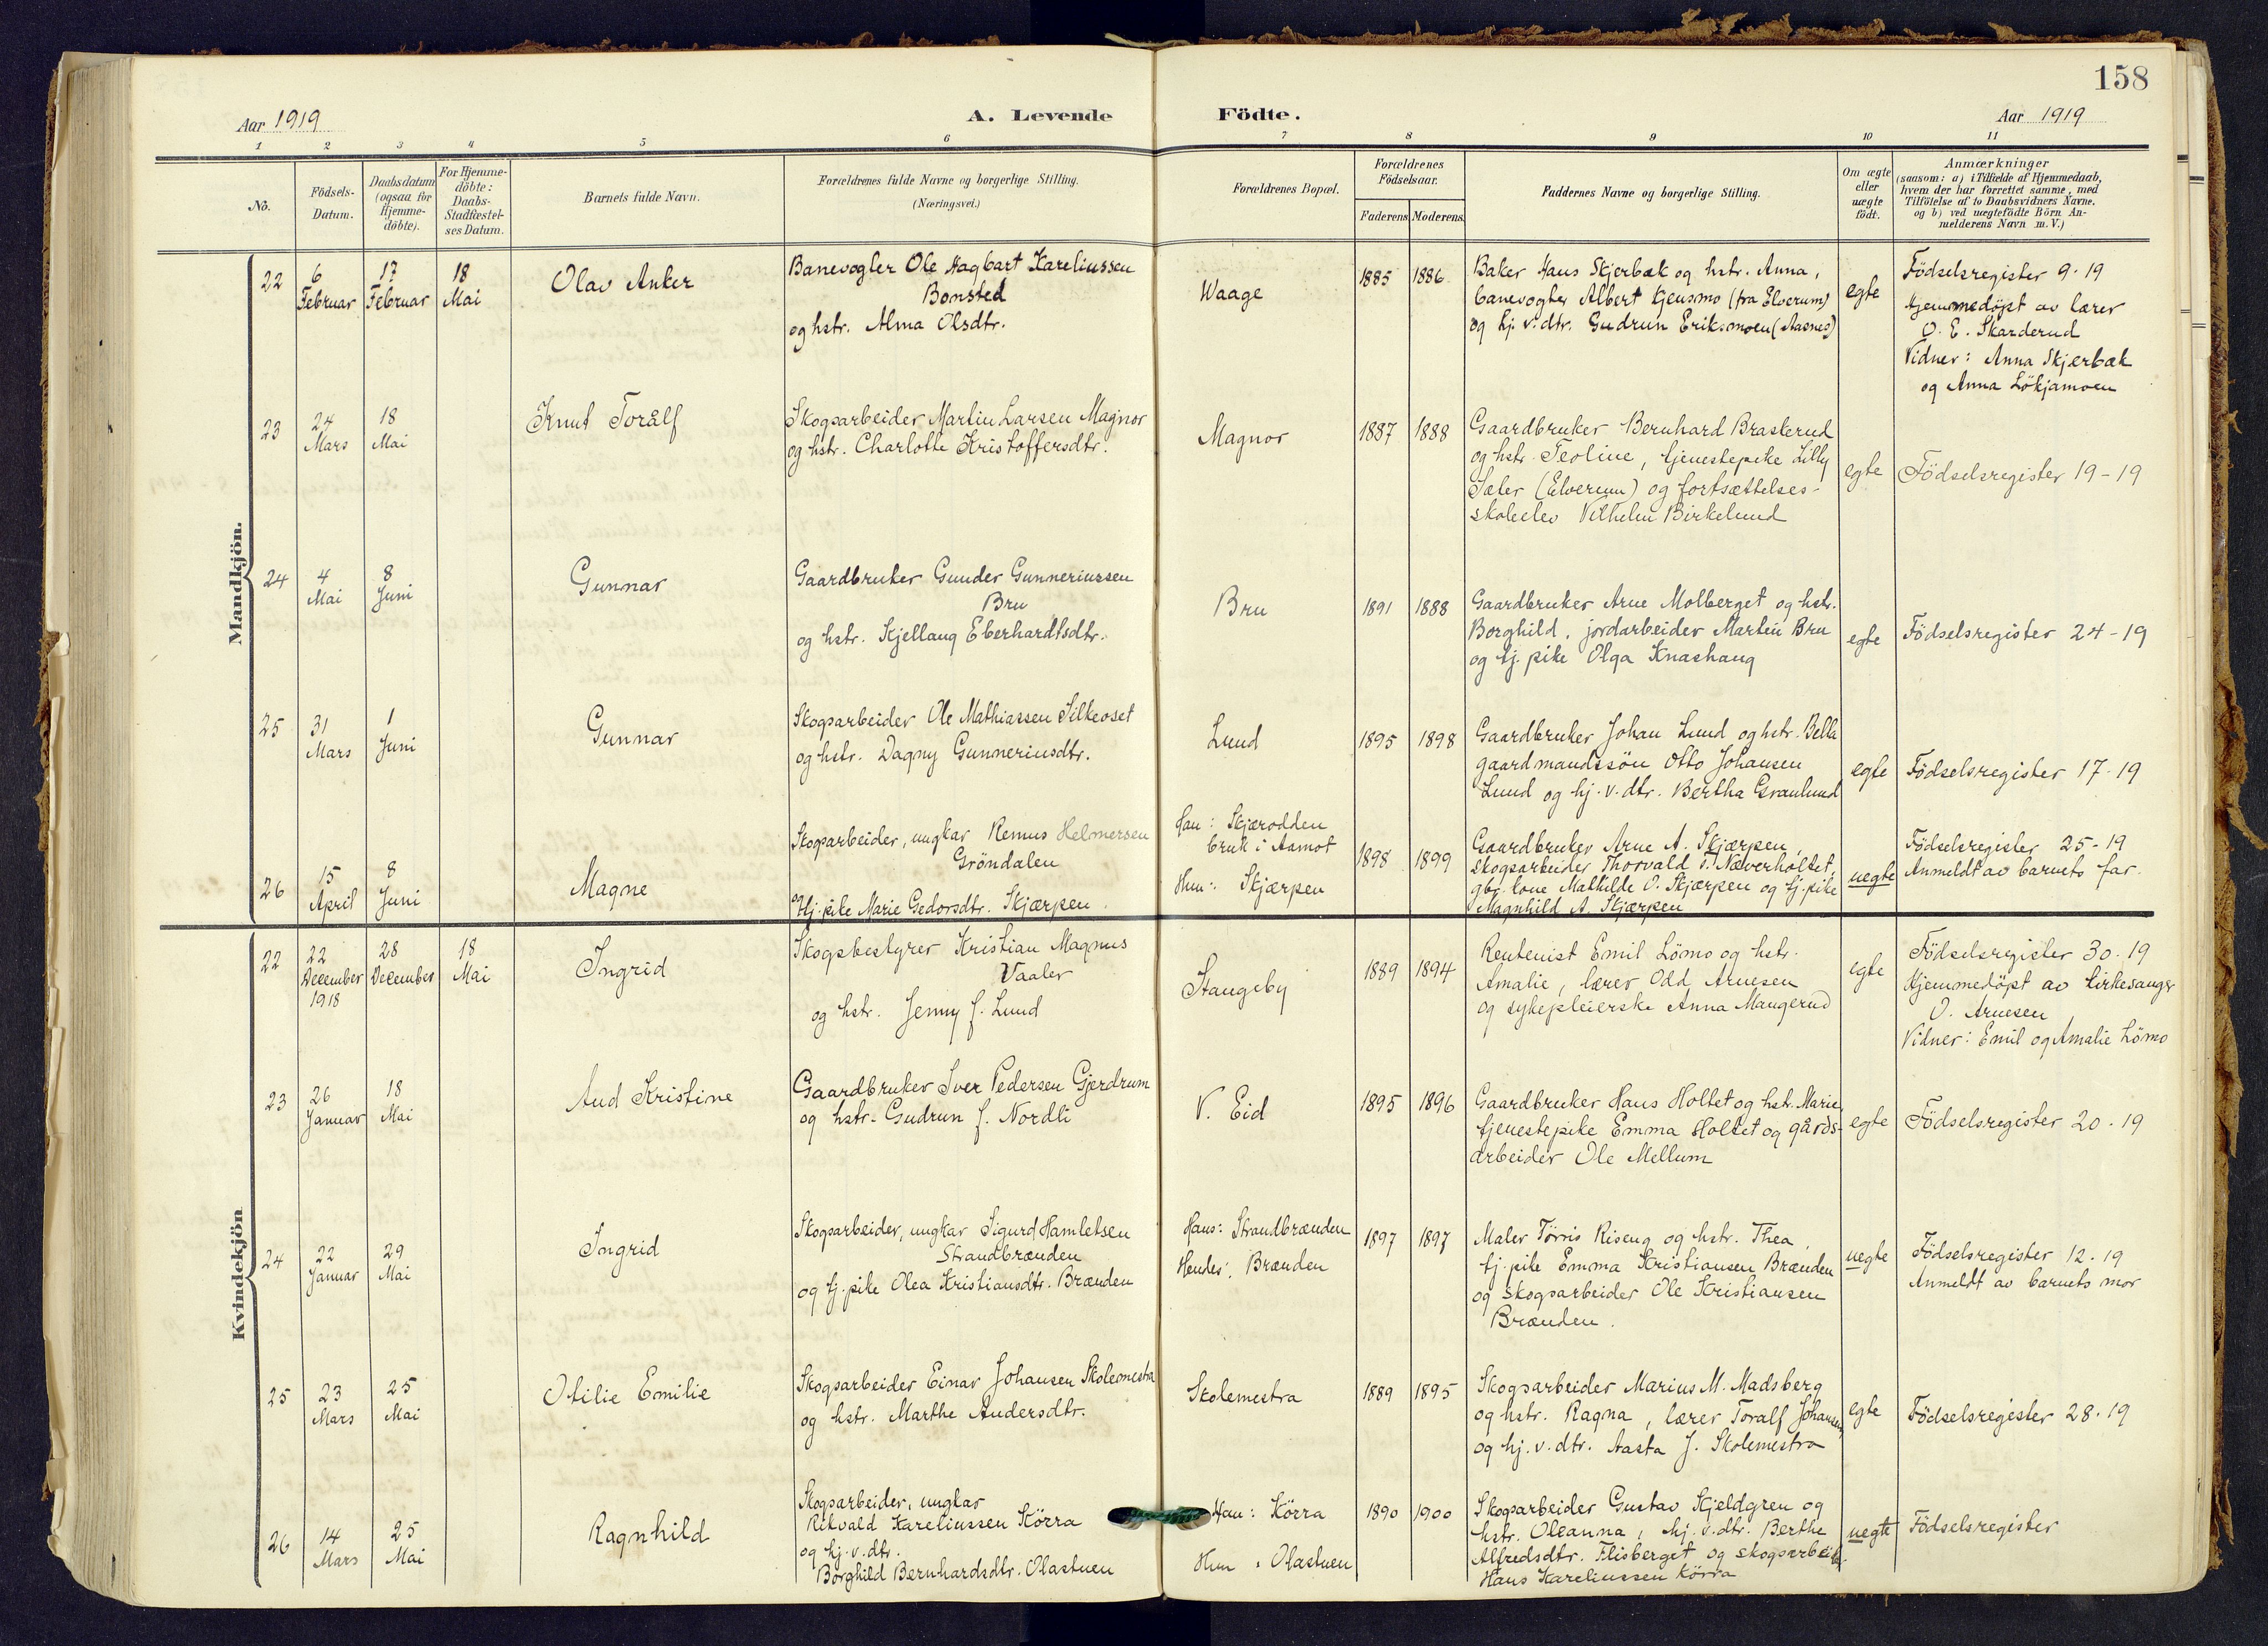 158
Aar 1919
A. Levende Födte.
Aar 1919
1 2 3 4 5 6 7 8 9 10 11
No.
Födsels-
Datum.
Daabsdatum
(ogsaa for
Hjemme-
döbte).
For Hjemme-
döbte:
Daabs-
Stadfæstel-
ses Datum.
Barnets fulde Navn.
Forældrenes fulde Navne og borgerlige Stilling.
(Næringsvei.)
Forældrenes Bopæl.
Forældrenes
Födselsaar.
Faderens Moderens.
Faddernes Navne og borgerlige Stilling.
Om ægte
eller
uægte
födt.
Anmærkninger
(saasom: a) i Tilfælde af Hjemmedaab,
hvem der har forrettet samme, med
Tilföielse af to Daabsvidners Navne.
og b) ved uægtefödte Börn An-
melderens Navn m. V.)
Mandkjön.
22
6
Februar
17
Februar
18
Mai
Olav Anker
Banevogter Ole Hagbart Kareliussen
Bonsted
og hstr. Alma Olsdtr.
Waage
1885 1886
Baker Hans Skjerbæk og hstr. Anna,
banevogter Albert Kjensmo (fra Elverum)
og hj. v. dtr. Gudrun Eriksmoen (Aasnes)
egte
Födselsregister 9-19
Hjemmedöpt av lærer
O. E. Skarderud
Vidner: Anna Skjerbæk
og Anna Lökjamoen
23
24
Mars
18
Mai
Knut Torålf
Skogsarbeider Martin Larsen Magnor
og hstr. Charlotte Kristoffersdtr.
Magnor
1887 1888
Gaardbruker Bernhard Brasterud
og hstr. Teoline, tjenestepike Lilly
Sæter (Elverum) og fortsættelses-
skoleelev Vilhelm Birkelund
egte
Födselsregister 19-19
24
4
Mai
8
Juni
Gunnar
Gaardbruker Gunder Gunneriussen
Bru
og hstr. Kjellaug Eberhardtsdtr.
Bru
1891 1888
Gaardbruker Arne Molberget og hstr.
Borghild, jordarbeider Martin Bru
og tj. pike Olga Knashaug
egte
Födselsregister 24-19
25
31
Mars
1
Juni
Gunnar
Skogsarbeider Ole Mathiassen Silkeoset
og hstr. Dagny Gunneriusdtr.
Lund
1895 1898
Gaardbruker Johan Lund og hstr. Bella
gaardmandssön Otto Johansen
Lund og hj. v. dtr. Bertha Granlund
egte
Födselsregister 17-19
26
15
April
8
Juni
Magne
Skogsarbeider, ungkar Remus Helmersen
Gröndalen
og Hj. pike Marie Gedorsdtr. Skjærpen.
Han: Skjærodden
bruk i Aamot
Hun: Skjærpen
1898 1899
Gaardbruker Arne A. Skjærpen,
skogsarbeider Thorvald T. Næverholtet,
gbr. kone Mathilde O. Skjærpen og tj. pike
Magnhild A. Skjærpen
uegte
Födselsregister 25-19
Anmeldt av barnets far.
Kvindekjön
22
22
December
1918
28
December
18
Mai
Ingrid
Skogsbestyrer Kristian Magnus
Vaaler
og hstr. Jenny f. Lund
Stangeby
1889 1894
Rentenist Emil Lömo og hstr.
Amalie, lærer Odd Arnesen
og sykepleierske Anna Mangerud
egte
Födselsregister 30-19
Hjemmedöpt av kirkesanger
O. Arnesen
Vidner: Emil og Amalie Lömo
23
26
Januar
18
Mai
Aud Kristine
Gaardbruker Iver Pedersen Gjerdrum
og hstr. Gudrun f. Nordli
V. Eid
1895 1896
Gaardbruker Hans Holtet og hstr. Marie,
tjenestepike Emma Holtet og gårds-
arbeider Ole Mellum
egte
Födselsregister 20-19
24
22
Januar
29
Mai
Ingrid
Skogsarbeider, ungkar Sigurd Hamletsen
Strandbrænden
og tj. pike Olea Kristiansdtr. Brænden
Hans: Strandbrænden
Hendes: Brænden
1897 1897
Maler Törris Riseng og hstr. Thea,
tj. pike Emma Kristiansen Brænden
og skogsarbeider Ole Kristiansen
Brænden.
uegte
Födselsregister 12-19
Anmeldt av barnets mor
25
23
Mars
25
Mai
Otilie Emilie
Skogsarbeider Einar Johansen Skolemestra
og hstr. Marthe Andersdtr.
Skolemestra
1889 1895
Skogsarbeider Marius M. Madsberg
og hstr. Ragna, lærer Toralf Johansen
og hj. v. dtr. Aasta J. Skolemestra
egte
Födselsregister 28-19
26
14
Mars
25
Mai
Ragnhild
Skogsarbeider, ungkar
Rikvald Kareliussen Körra
og hj. v. dtr.
Borghild Bernhardsdtr. Olastuen
Han: Körra
Hun: Olastuen
1890 1900
Skogsarbeider Gustav Skjeldgren og
hstr. Oleanna, hj. v. dtr. Berthe
Alfredsdtr. Flisberget og skogsarbeid.
Hans Kareliussen Körra
uegte
Födselsregister